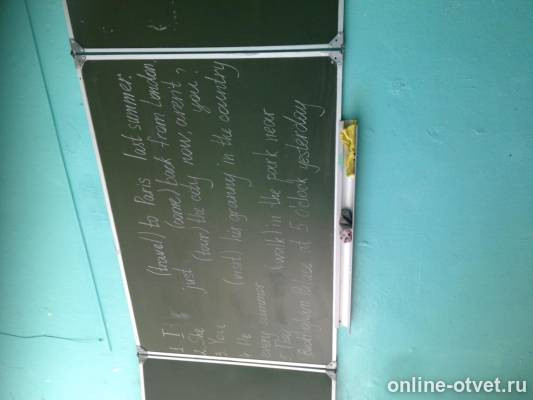 1. I (travel) to Paris last summer.
2. She (come) back from London.
3. You just (tour) the city now, aren't you?
4. He (visit) his granny in the country
every summer
5. They (walk) in the park near
Buckingham Palace at 5 o'clock yesterday
online-otvet.ru